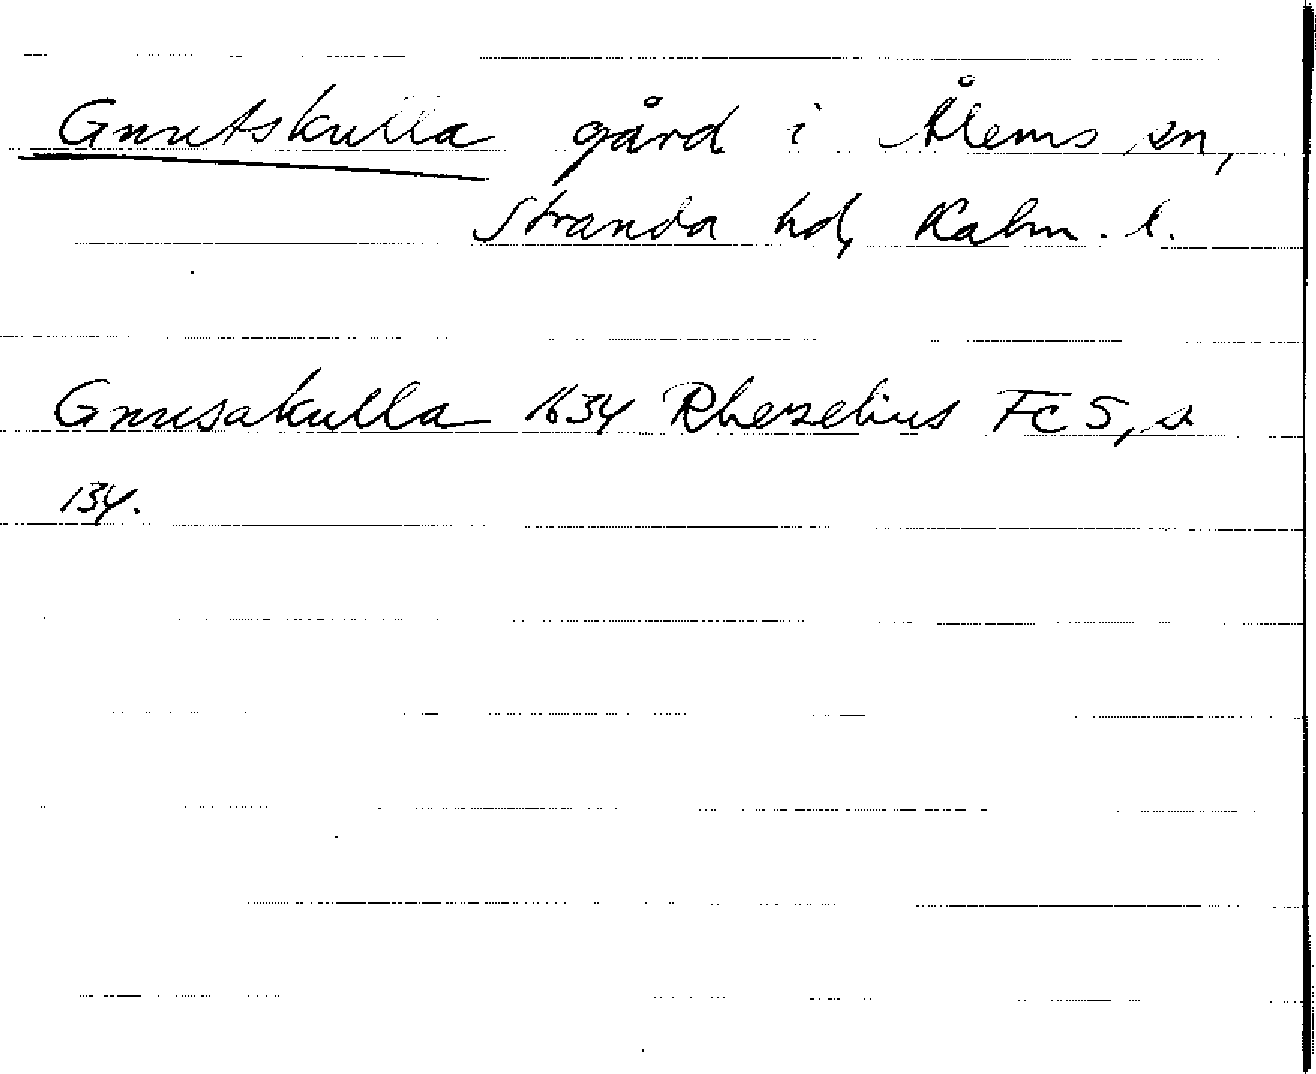 Gnutskulla gård i Ålems sn,
Stranda hd, Kalm. l.
Gnusakulla 1634 Rhezelius Fc 5, s.
134.